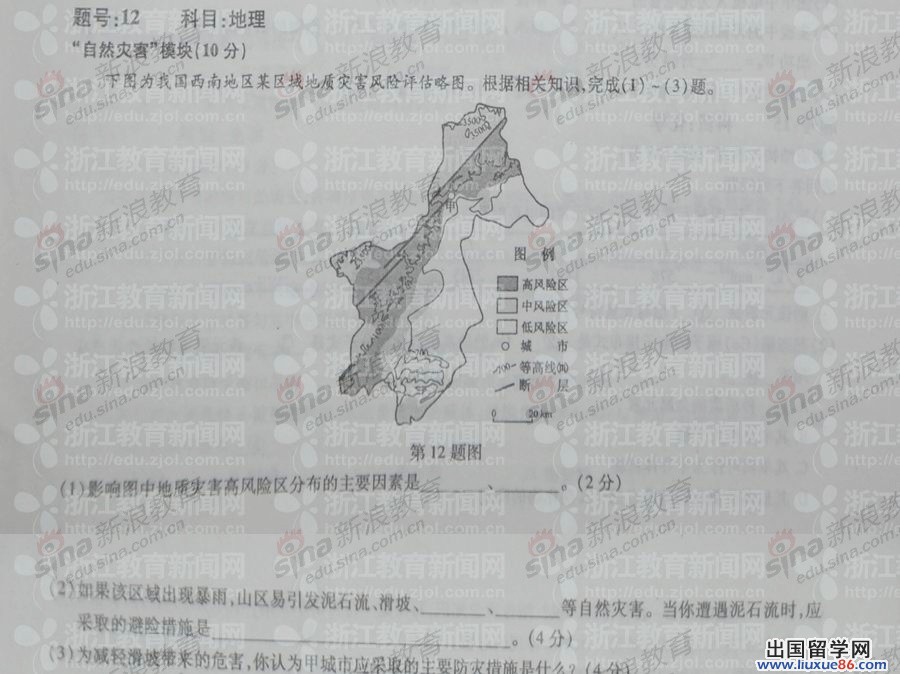 题号:12 科目:地理
“自然灾害”模块(10分)
下图为我国西南地区某区域地质灾害风险评估略图。根据相关知识,完成(1)~(3)题。
3500
3500
甲
图 例
高风险区
中风险区
低风险区
城 市
等高线(m)
断 层
0 20 km
第12题图
(1)影响图中地质灾害高风险区分布的主要因素是______、______。(2分)
(2)如果该区域出现暴雨,山区易引发泥石流、滑坡、______、______等自然灾害。当你遭遇泥石流时,应
采取的避险措施是______。(4分)
(3)为减轻滑坡带来的危害,你认为甲城市应采取的主要防灾措施是什么?(4分)
浙江教育新闻网
http://edu.zjol.com.cn
sina新浪教育
edu.sina.com.cn
出国留学网
www.liuxue86.com